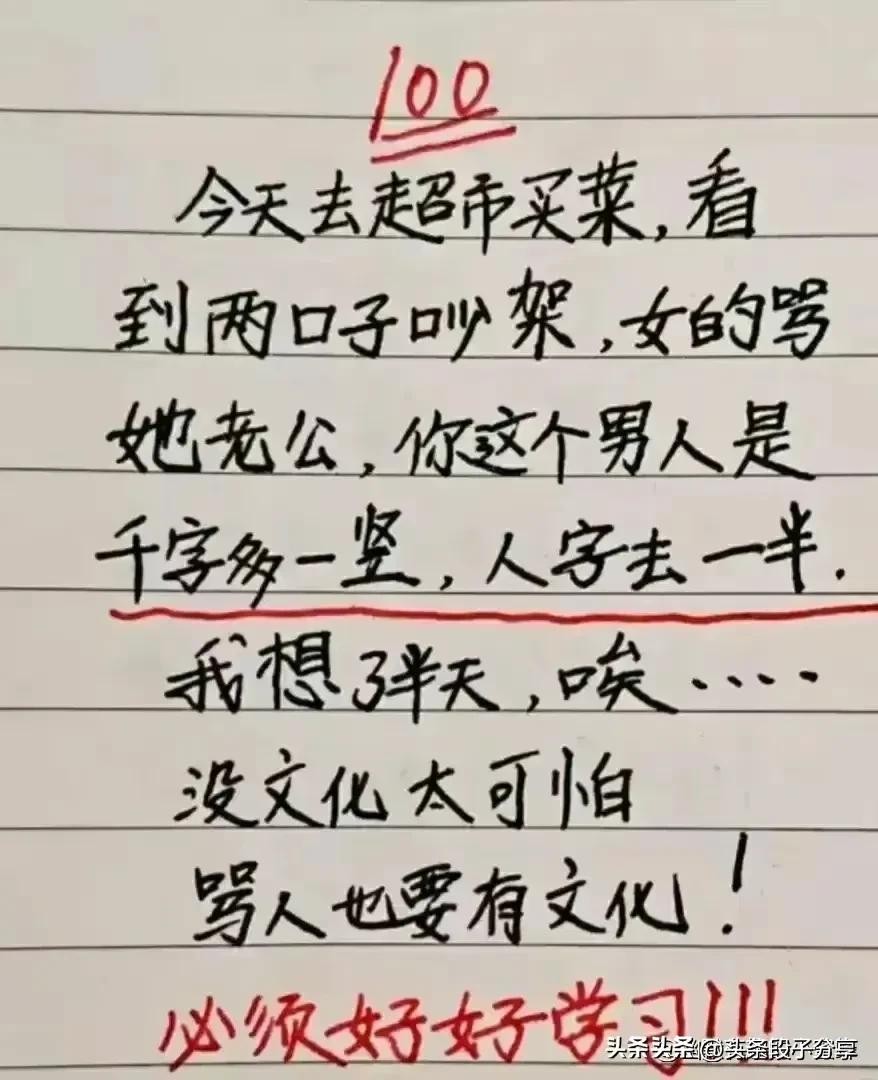 100
今天去超市买菜,看
到两口子吵架,女的骂
她老公,你这个男人是
千字多一竖,人字去一半.
我想了半天,唉·····
没文化太可怕
骂人也要有文化!
必须好好学习!!!
头条头条@头条段子分享